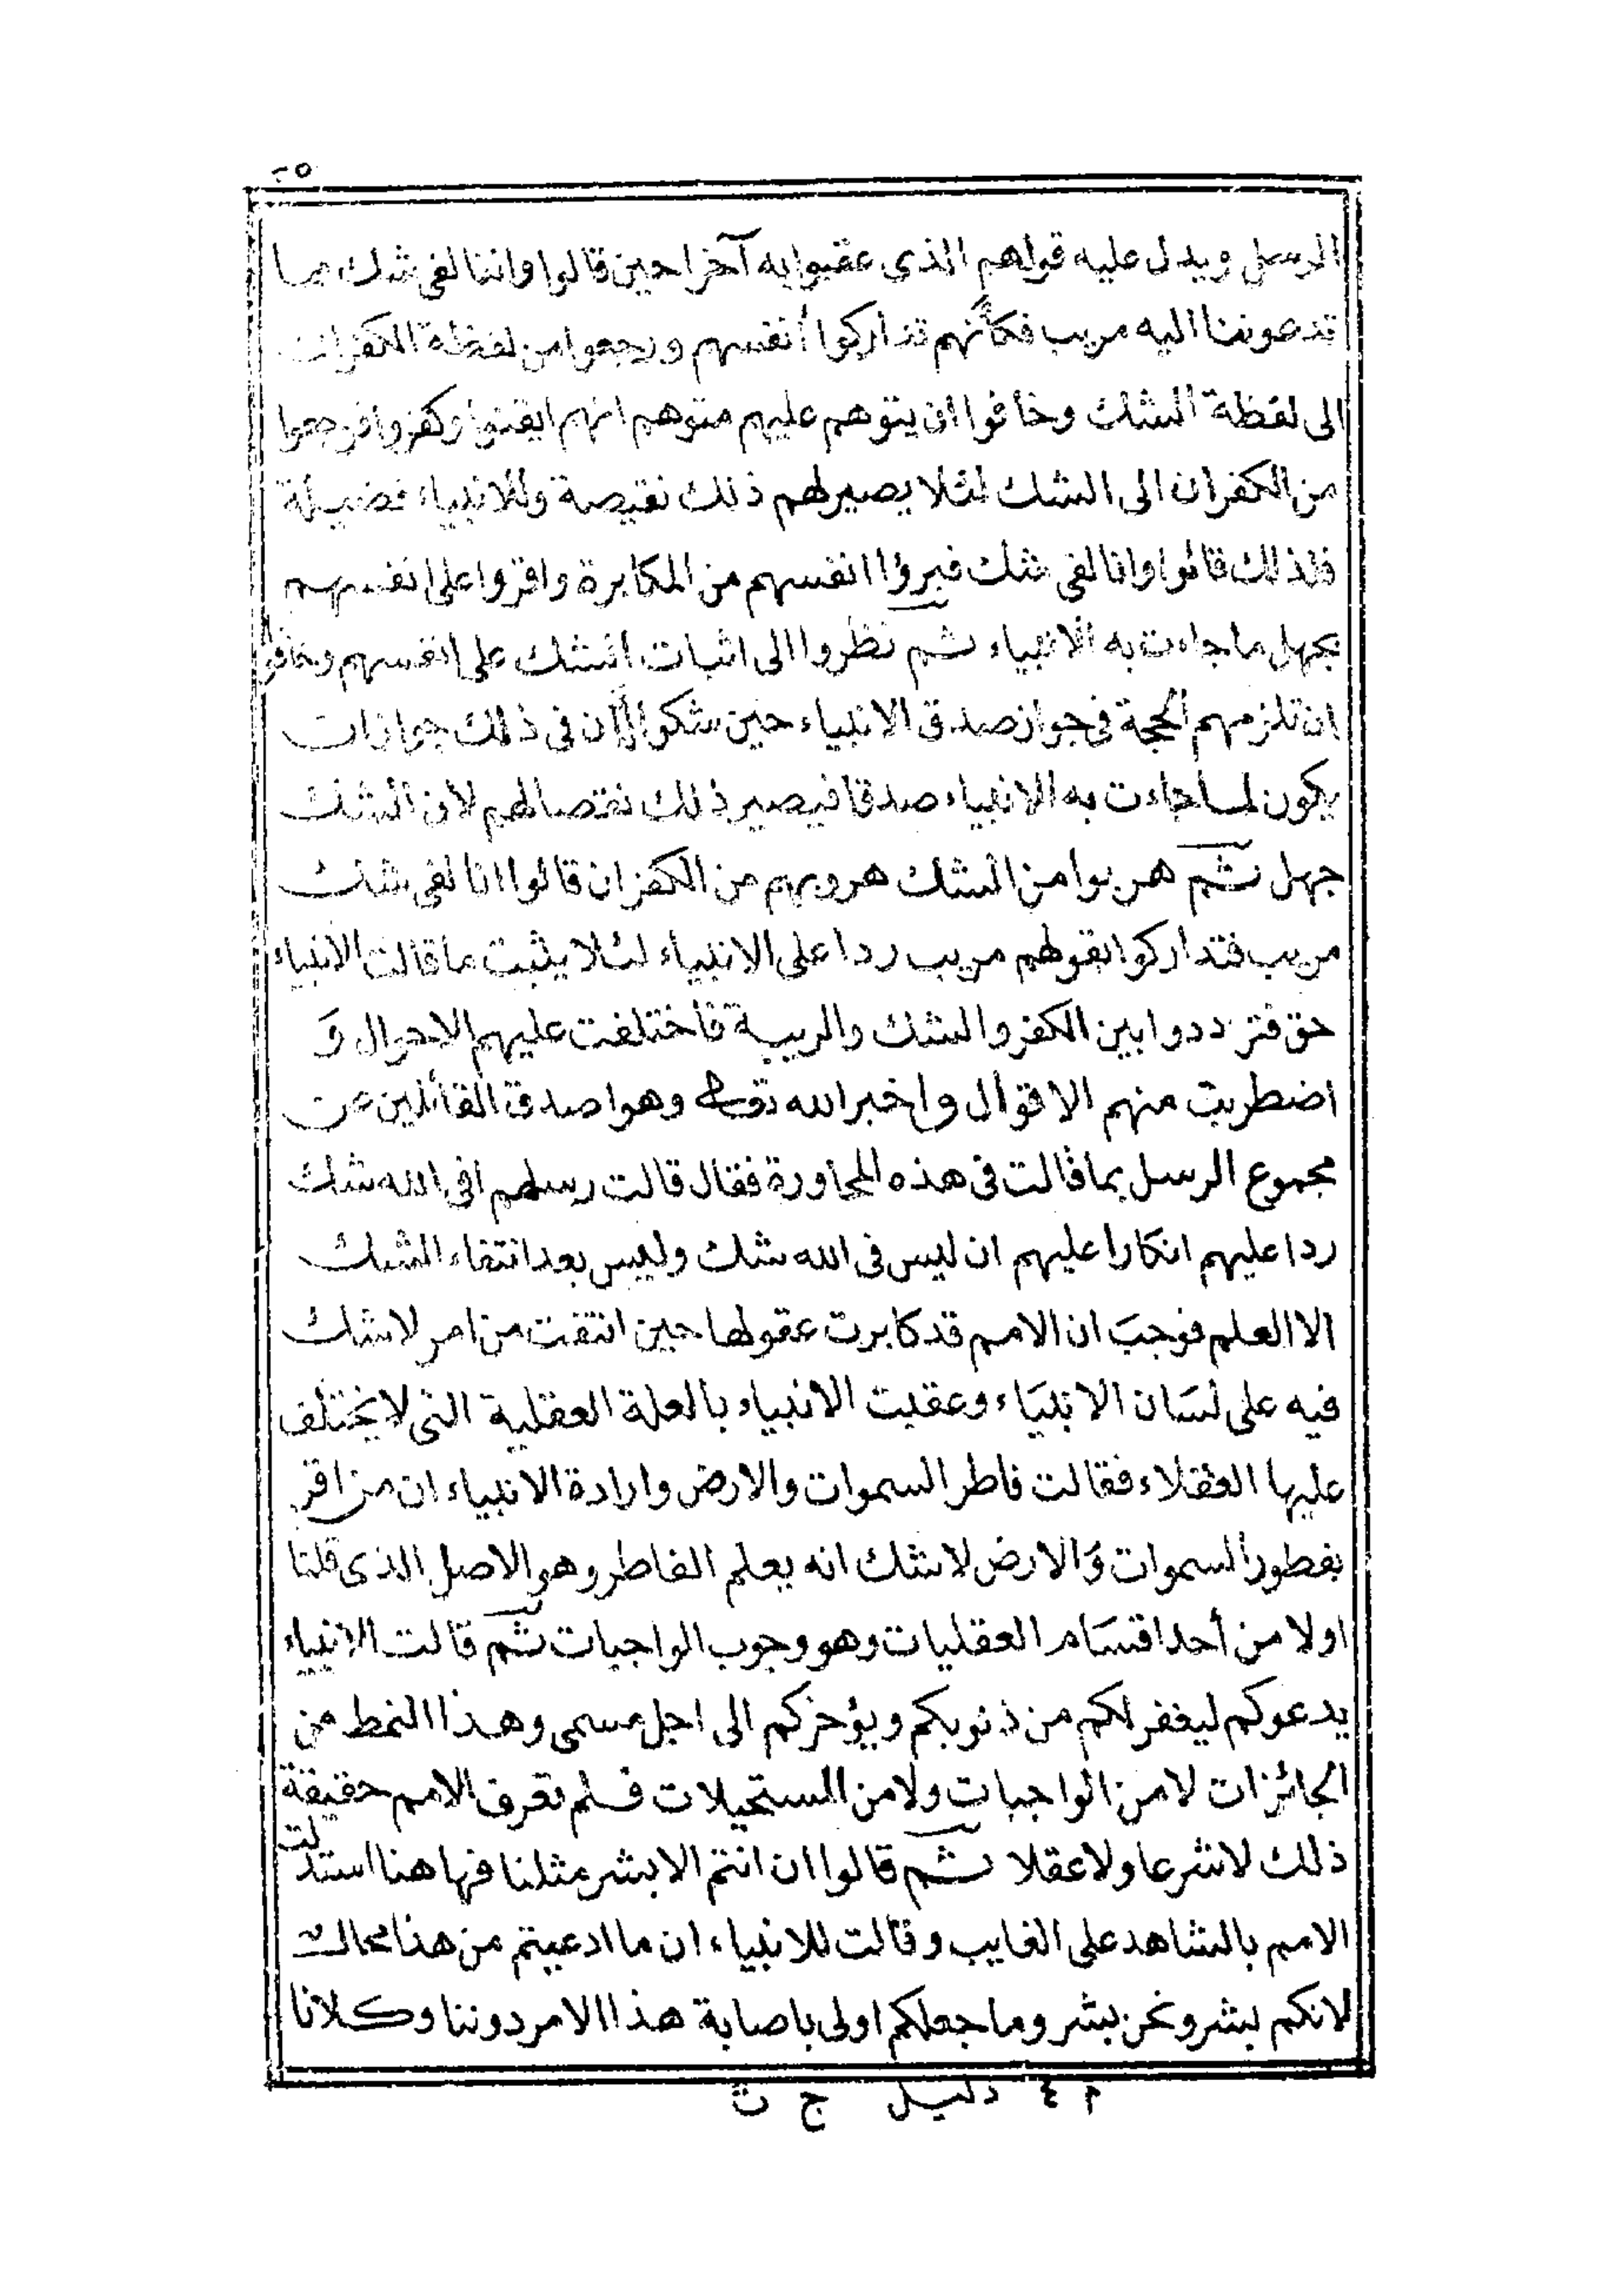 ٢٥
الرسل ويدل عليه قولهم الذى عقبوا به آخرا حين قالوا واننا لفى شك مما
تدعوننا اليه مريب فكأنهم تداركوا أنفسهم ورجعوا من لفظة الكفران
الى لفظة الشك وخافوا ان يتوهم عليهم متوهم انهم ايقنوا وكفروا فرجعوا
من الكفران الى الشك لئلا يصير لهم ذلك نقيصة وللانبياء فضيلة
فلذلك قالوا وانا لفى شك فبرؤا انفسهم من المكابرة واقروا على انفسهم
بجهل ما جاءت به الانبياء ثم نظروا الى اثبات الشك على انفسهم وخافوا
ان تلزمهم الحجة فى جواز صدق الانبياء حين شكوا لأن فى ذلك جواز ان
يكون لما جاءت به الانبياء صدقا فيصير ذلك نقصا لهم لان الشك
جهل ثم هربوا من الشك هروبهم من الكفران قالوا انا لفى شك
مريب فتداركوا بقولهم مريب ردا على الانبياء لئلا يثبت ما قالت الانبياء
حق فترددوا بين الكفر والشك والريبة فاختلفت عليهم الاحوال وَ
اضطربت منهم الاقوال واخبر الله تعالى وهو اصدق القائلين عن
مجموع الرسل بما قالت فى هذه المحاورة فقال قالت رسلهم افى الله شك
ردا عليهم انكارا عليهم ان ليس فى الله شك وليس بعد انتفاء الشك
الا العلم فوجبَ ان الامم قد كابرت عقولها حين انتقت من امر لا شك
فيه على لسَان الانبيَاء وعقبت الانبياء بالعلة العقلية التى لا يختلف
عليها العقلاء فقالت فاطر السموات والارض وارادة الانبياء ان من اقر
بفطور السموات وَالارض لا شك انه يعلم الفاطر وهو الاصل الذى قلنا
اولا من أحد اقسَام العقليات وهو وجوب الواجبات ثم قالت الانبياء
يدعوكم ليغفر لكم من ذنوبكم ويؤخركم الى اجل مسمى وهذا النمط من
الجائزات لا من الواجبات ولا من المستحيلات فلم تعرف الامم حقيقة
ذلك لا شرعا ولا عقلا ثم قالوا ان انتم الا بشر مثلنا فها هنا استدلت
الامم بالشاهد على الغايب وقالت للانبياء ان ما ادعيتم من هذا محال
لانكم بشر ونحن بشر وما جعلكم اولى باصابة هذا الامر دوننا وكلانا
م ٤ دليل ج ث